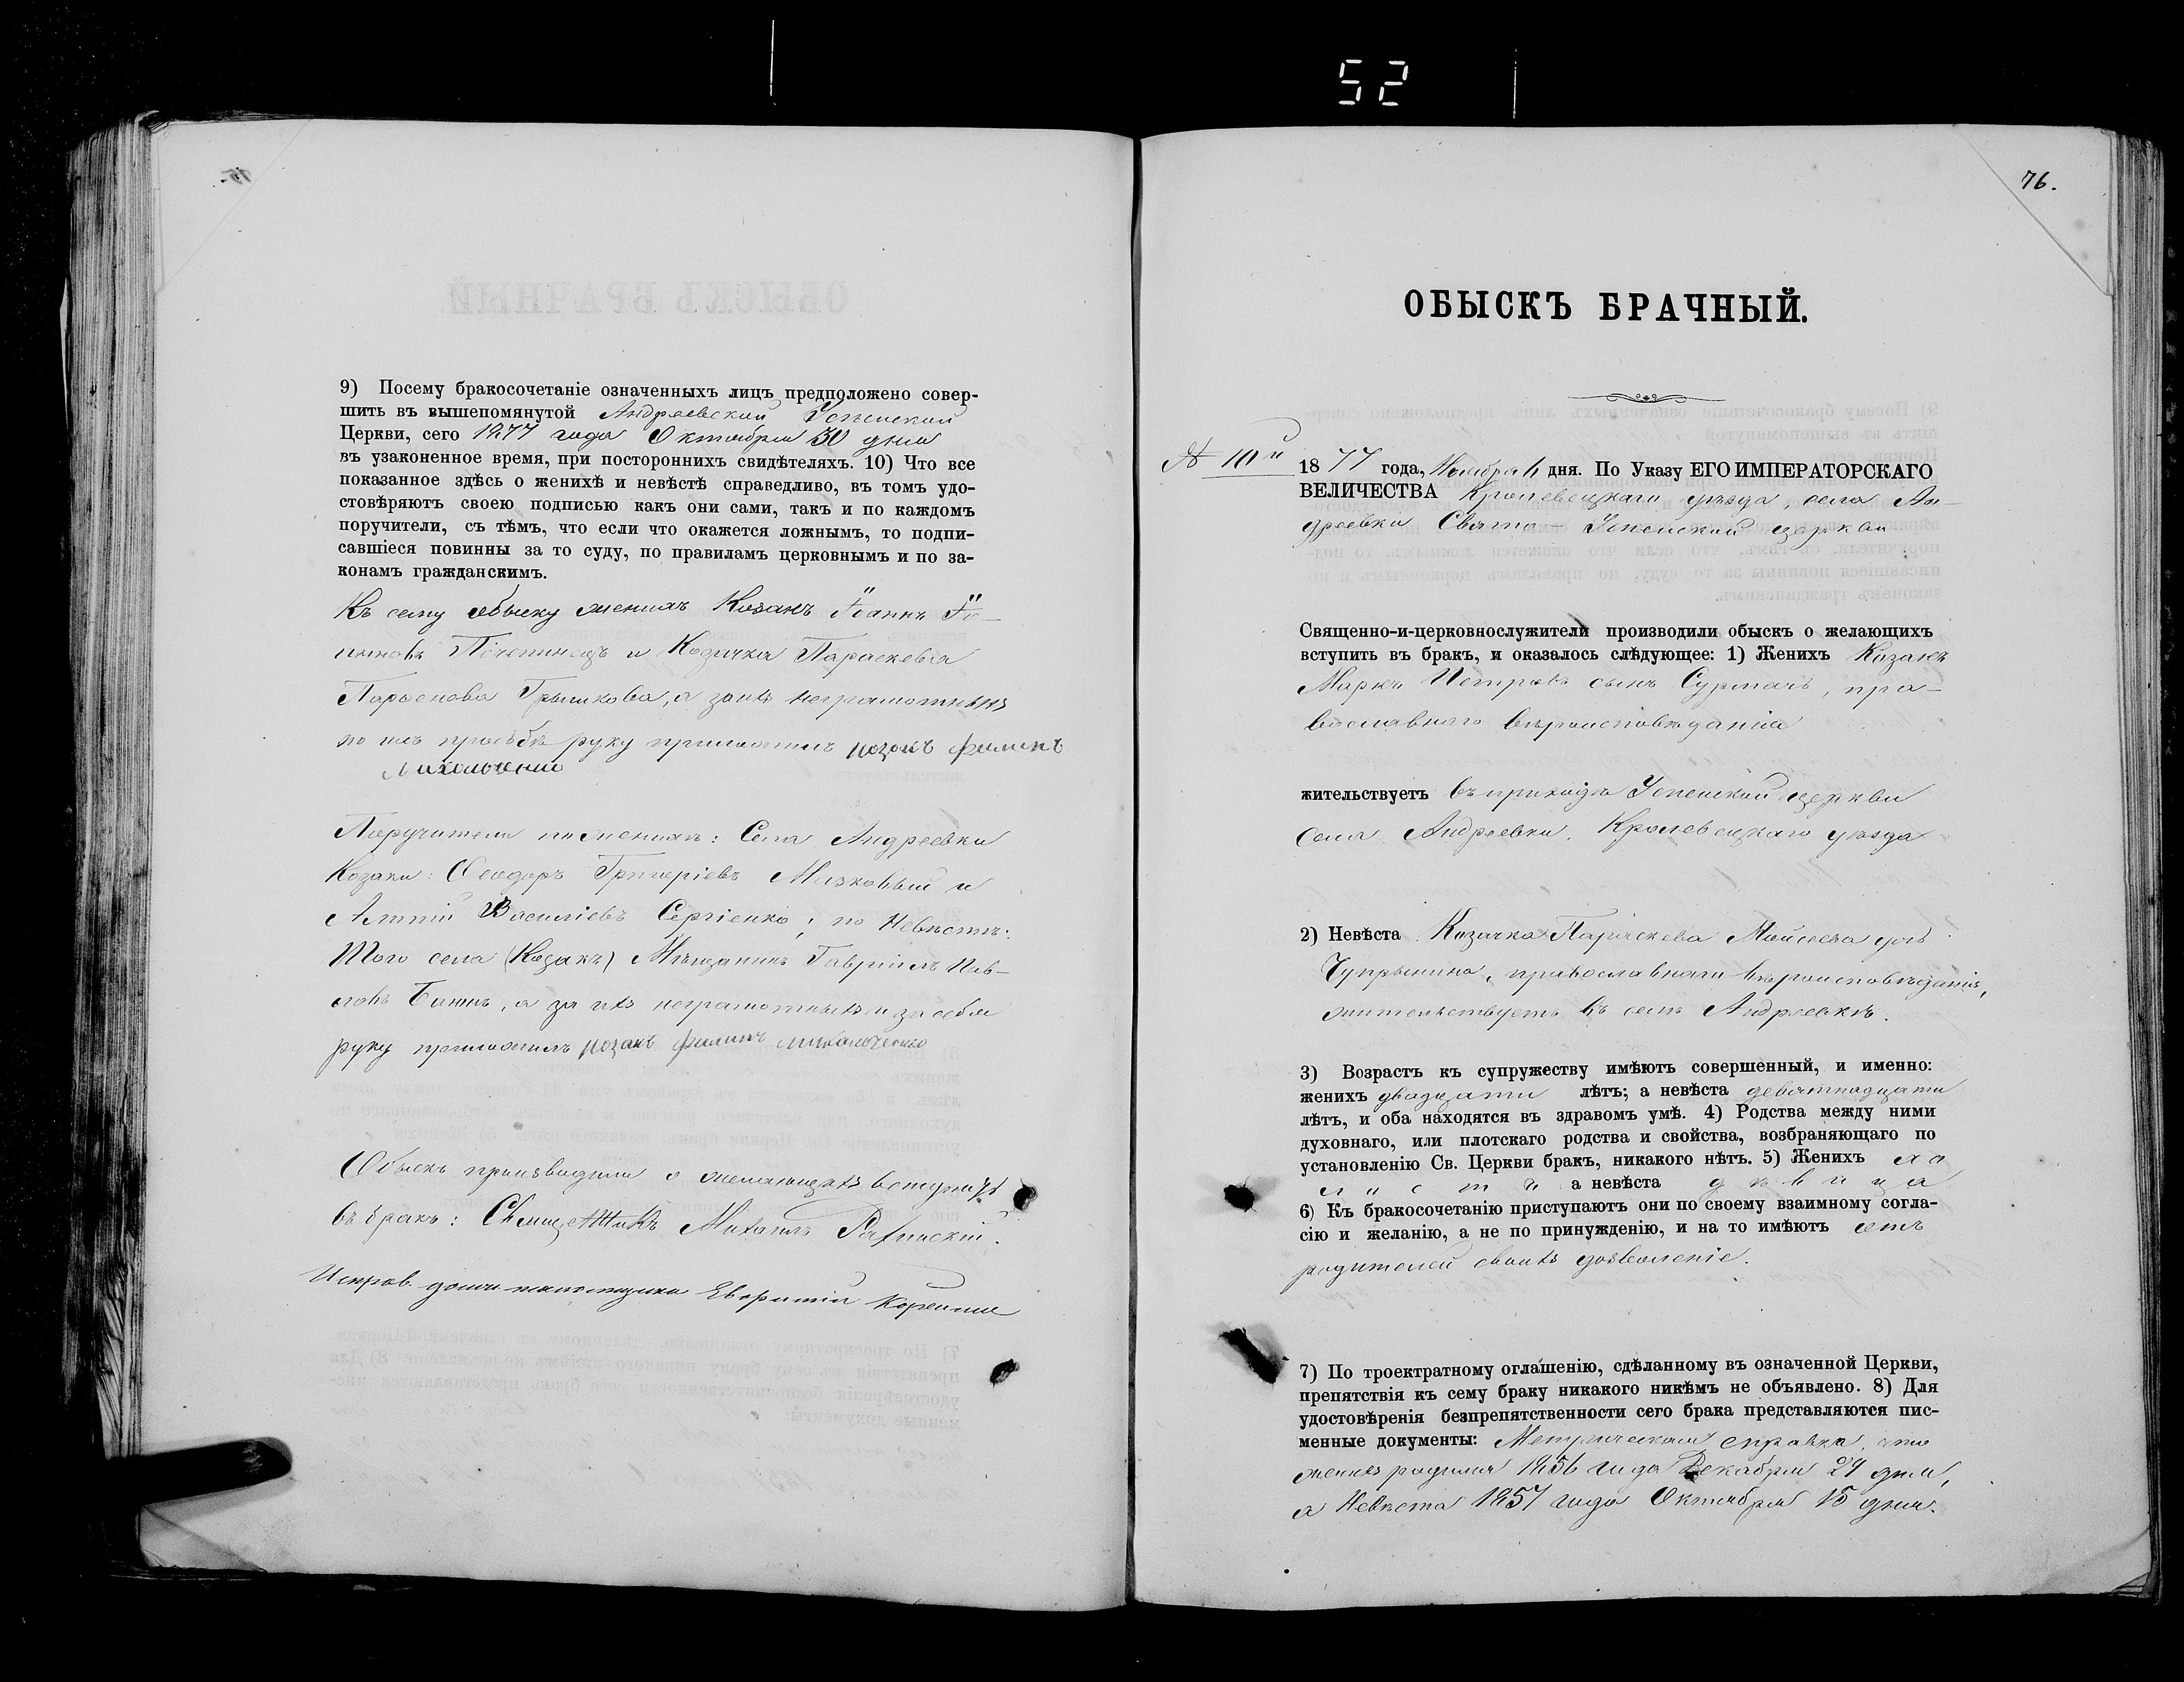 52
9) Посему бракосочетаніе означенныхъ лицъ предположено совер-
шить въ вышепомянутой Андреевской Успенской
Церкви, сего 1877 года Октября 30 дня
въ узаконенное время, при постороннихъ свидѣтеляхъ. 10) Что все
показанное здѣсь о женихѣ и невѣстѣ справедливо, въ томъ удо-
стовѣряютъ своею подписью какъ они сами, такъ и по каждомъ
поручители, съ тѣмъ, что если что окажется ложнымъ, то подпи-
савшіеся повинны за то суду, по правиламъ церковнымъ и по за-
конамъ гражданскимъ.
Къ сему обыску женихъ Козакъ Іоаннъ
и Козачка Параскевія
Парѳенова а за ихъ неграмотныхъ
по ихъ прозьбѣ руку приложилъ козакъ филипъ
Михальченко
Поручители по женихѣ: Села Андреевки
Козаки: Ѳеодоръ Григоріевъ и
Алипій Василіевъ Сергіенко; по Невѣстѣ:
Того села (Козакъ) Мѣщанинъ Гавріилъ Пав-
ловъ а за ихъ неграмотныхъ и за себя
руку приложилъ козакъ филипъ михальченко
Обыскъ производили о желающихъ вступить
въ бракъ: Священникъ Михаилъ
Исправ. долж. псаломщика Евфимій
76.
ОБЫСКЪ БРАЧНЫЙ.
№ 10й
1877 года, Ноября 6 дня. По Указу ЕГО ИМПЕРАТОРСКАГО
ВЕЛИЧЕСТВА Кролевецкаго уѣзда, села Ан-
дреевки Свято-Успенской церкви
Священно-и-церковнослужители производили обыскъ о желающихъ
вступить въ бракъ, и оказалось слѣдующее: 1) Женихъ Козакъ
Маркъ Петровъ сынъ Сурмачъ, пра-
вославнаго вѣроисповѣданія
жительствуетъ въ приходѣ Успенской церкви
села Андреевки, Кролевецкаго уѣзда
2) Невѣста Козачка Параскева Моисеева дочь
Чупрынина, православнаго вѣроисповѣданія,
жительствуетъ въ селѣ Андреевкѣ.
3) Возрастъ къ супружеству имѣютъ совершенный, и именно:
женихъ двадцати лѣтъ; а невѣста девятнадцати
лѣтъ, и оба находятся въ здравомъ умѣ. 4) Родства между ними
духовнаго, или плотскаго родства и свойства, возбраняющаго по
установленію Св. Церкви бракъ, никакого нѣтъ. 5) Женихъ хо
лостъ а невѣста дѣвица
6) Къ бракосочетанію приступаютъ они по своему взаимному согла-
сію и желанію, а не по принужденію, и на то имѣютъ отъ
родителей своихъ дозволеніе.
7) По троектратному оглашенію, сдѣланному въ означенной Церкви,
препятствія къ сему браку никакого никѣмъ не объявлено. 8) Для
удостовѣренія безпрепятственности сего брака представляются пис-
менные документы: Метрическая справка, что
женихъ родился 1856 года Декабря 29 дня,
а Невѣста 1857 года Октября 15 дня.